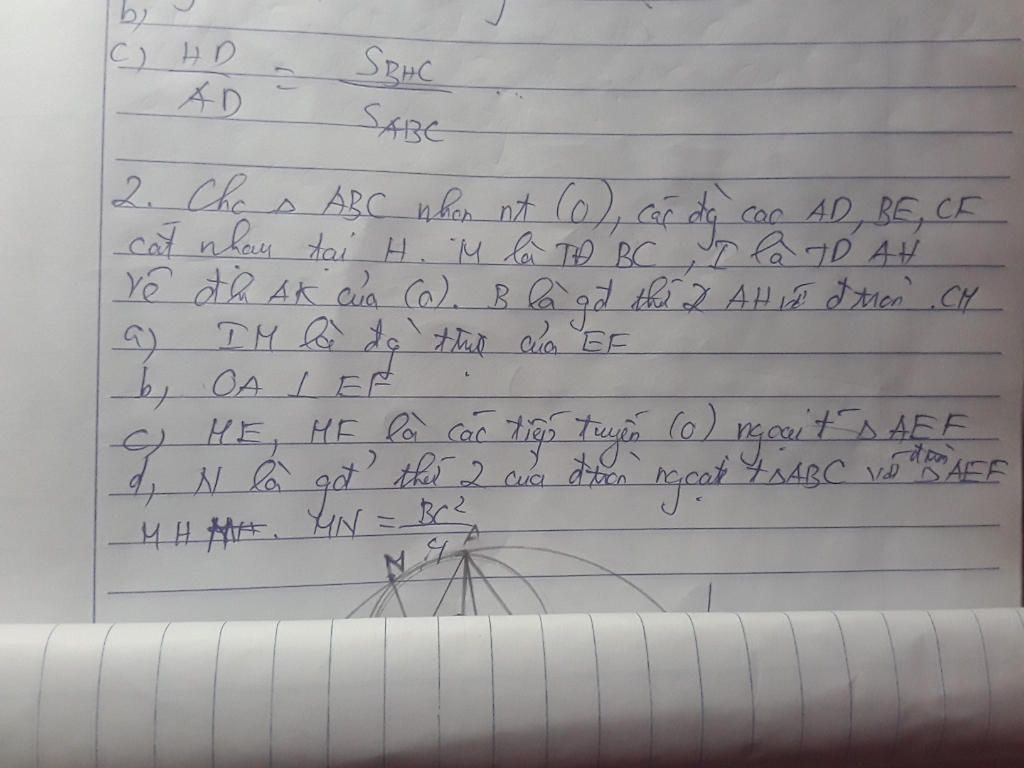 b,
c) HD / AD = S BHC / S ABC
2. Cho △ ABC nhọn nt (O), các đg cao AD, BE, CF
cắt nhau tại H. M là TĐ BC, I là TĐ AH
Vẽ đk AK của (O). B là gđ thứ 2 AH với đtròn. CM
a) IM là đg thực của EF
b, OA ⊥ EF
c) ME, MF là các tiếp tuyến (O) ngoại t △ AEF
d, N là gđ thứ 2 của đtròn ngoại t △ABC với đtròn △AEF
MH . MN = BC² / 4
N A